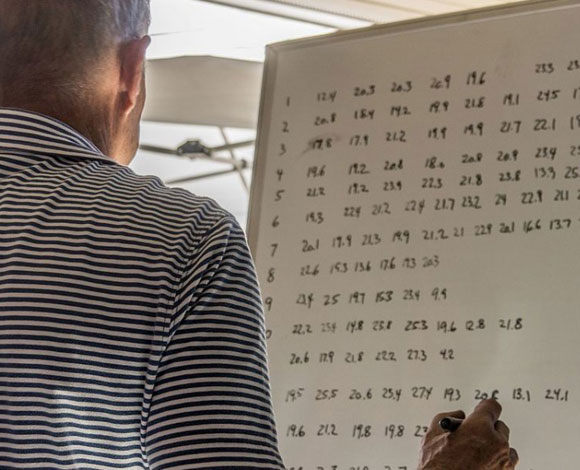 1 12.4 20.3 20.3 20.9 19.6 23.3
2 20.8 18.4 19.2 19.9 21.8 19.1 24.5
3 17.8 17.9 21.2 19.9 19.9 21.7 22.1
4 19.6 19.2 20.8 18.0 20.8 20.9 23.4
5 21.2 19.2 23.9 22.3 21.8 23.8 13.3
6 19.3 22.4 21.2 22.4 21.7 23.2 24 22.9 21.1
7 20.1 17.9 21.3 19.9 21.2 21 22.9 20.1 16.6 13.7
8 22.6 15.3 13.6 17.6 17.3 20.3
9 23.4 25 19.7 15.3 23.4 9.9
22.2 23.4 14.8 23.8 25.3 19.6 12.8 21.8
20.6 17.9 21.8 22.2 27.3 4.2
19.5 25.5 20.6 23.4 27.4 19.3 20.8 13.1 24.1
19.6 21.2 19.8 19.8